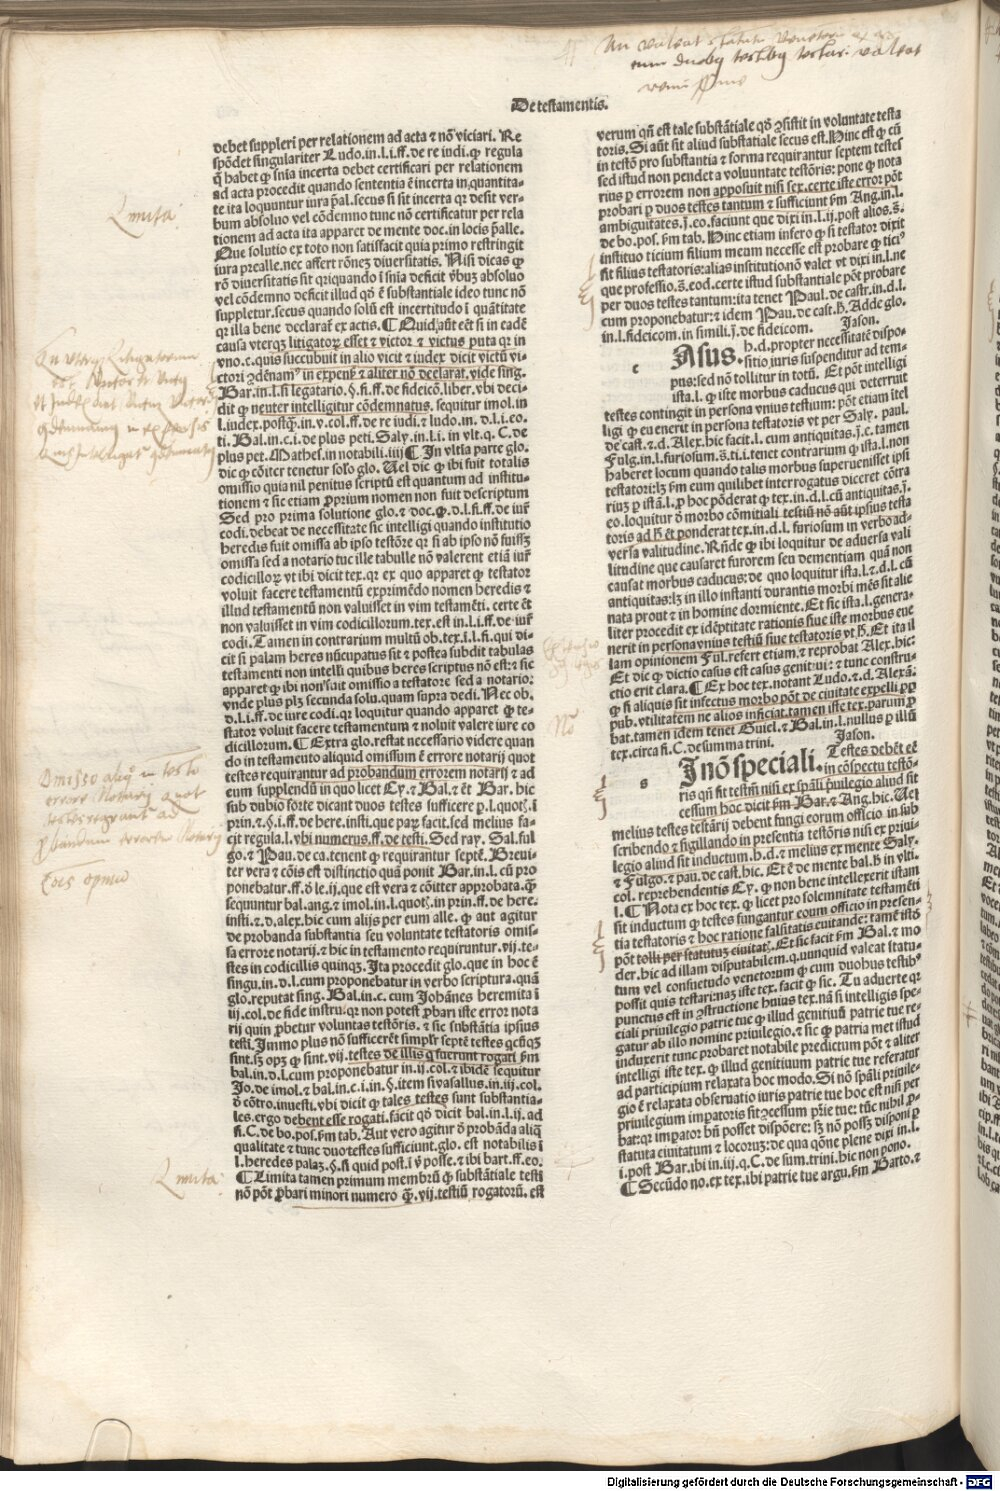 An valeat statutum venetorum
cum duobus testibus testari valeat
De testamentis.
debet suppleri per relationem ad acta ⁊ nõ viciari. Re
spõdet singulariter Ludo.in.l.i.ff.de re iudi.ꝙ regula
q̃ habet ꝙ sñia incerta debet certificari per relationem
ad acta procedit quando sententia ẽ incerta in quantita-
te ita loquuntur iura p̃al.secus si sit incerta qꝛ desit ver-
bum absoluo vel cõdemno tunc nõ certificatur per rela
tionem ad acta ita apparet de mente doc.in locis p̃alle.
Que solutio ex toto non satisfacit quia primo restringit
iura preallenec affert rõneʒ diuersitatis. Nisi dicas ꝙ
rõ diuersitatis sit qꝛ quando ĩ sñia deficit v̾buʒ absoluo
vel cõdemno deficit illud qõ ẽ substantiale ideo tunc nõ
suppletur.secus quando solũ est incertitudo ĩ quãtitate
qꝛ illa bene declarat̃ ex actis. ¶ Quid aũt eẽt si in eadẽ
causa vterqʒ litigatoꝝ esset ⁊ victor ⁊ victus puta qꝛ in
vno.c.quis succubuit in alio vicit ⁊ iudex dicit victũ vi-
ctori ꝯdẽnam⁹ in expeñ ⁊ aliter nõ declarat.vide sing.
Bar.in.l.si legatario.§.si.ff.de fideicõ.liber.vbi deci-
dit ꝙ neuter intelligitur cõdemnatus. sequitur imol.in
l.iudex.postq̃ʒ.in.v.col.ff.de re iudi.⁊ ludo.in .d.l.i.co.
ti. Bal.in.c.i.de plus peti. Saly.in.l.i. in vlt.q. C.de
plus pet. Mathes.in notabili.iiij ¶ In vltia parte glo.
dic ꝙ cõiter tenetur solo glo. Uel dic ꝙ ibi fuit totalis
omissio quia nil penitus scriptũ est quantum ad institu-
tionem ⁊ sic etiam ꝓprium nomen non fuit descriptum
Sed pro prima solutione glo.⁊ doc.ꝙ.d.l.fi.ff.de iur̃
codi.debeat de necessitate sic intelligi quando institutio
heredis fuit omissa ab ipso testõre qꝛ si ab ipso nõ fuisʒ
omissa sed a notario tuc ille tabulle nõ valerent etiã iur̃
codicilloꝝ vt ibi dicit tex.qꝛ ex quo apparet ꝙ testator
voluit facere testamentũ exprimẽdo nomen heredis ⁊
illud testamentũ non valuisset in vim testamẽti. certe ẽt
non valuisset in vim codicillorum.tex.est in.l.i.ff.de iur̃
codi. Tamen in contrarium multũ ob.tex.ĩ.l.fi.qui di-
cit si palam heres nũcupatus sit ⁊ postea subdit tabulas
testamenti non intelli quibus heres scriptus nõ est:⁊ sic
apparet ꝙ ibi non fuit omissio a testatore sed a notario:
vnde plus plʒ secunda solu.quam supra dedi. Nec ob.
.d.l.i.ff.de iure codi.qꝛ loquitur quando apparet ꝙ te-
stator voluit facere testamentum ⁊ noluit valere iure co
dicillorum. ¶ Extra glo.restat necessario videre quan
do in testamento aliquid omissum ẽ errore notarij quot
testes requirantur ad probandum errorem notarij ⁊ ad
eum supplendũ in quo licet Cy.⁊ Bal.⁊ ẽt Bar. hic
sub dubio forte dicant duos testes sufficere p.l.quotˢ.ĩ
prin.⁊.§.i.ff.de here.insti.que paꝝ facit.sed melius fa-
cit regula.l.vbi numerus.ff.de testi. Sed ray. Sal.ful
go.⁊ Pau.de ca.tenent ꝙ requirantur septẽ. Breui-
ter vera ⁊ cõis est distinctio quã ponit Bar.in.l.cũ pro
ponebatur.ff.õ le.ij.que est vera ⁊ cõitter approbata.q̃
sequuntur bal.ang.⁊ imol.in.l.quotˢ.in prin.ff.de here.
insti.⁊.d.alex.hic cum alijs per eum alle. ꝙ aut agitur
de probanda substantia seu voluntate testatoris omis-
sa errore notarij.⁊ hic in testamento requiruntur.vij.te-
stes in codicillis quinqʒ. Ita procedit glo.que in hoc ẽ
singu.in.d.l.cum proponebatur in verbo scriptura.quã
glo.reputat sing. Bal.in.c.cum Johãnes heremita ĩ
iij.col.de fide instru.qꝛ non potest ꝓbari iste error nota
rij quin ꝓbetur voluntas testõris.⁊ sic substãtia ipsius
testi. Immo plus nõ sufficerẽt simplr̃ septẽ testes qcũqʒ
sint.sʒ opʒ ꝙ sint.vij.testes de illis q̃ fuerunt rogati ẜm
bal.in.d.l.cum proponebatur in.ij.col.⁊ ibidẽ sequitur
Jo.de imol.⁊ bal.in.c.i.in §.item si vasallus.in.iij.col.
õ cõtro.inuesti.vbi dicit ꝙ tales testes sunt substantia-
les.ergo debent esse rogati.facit qõ dicit bal.in.l.ij.ad
fi.C.de bo.pos.ẜm tab. Aut vero agitur õ ꝓbãda aliq̃
qualitate ⁊ tunc duo testes sufficiunt.glo.est notabilis ĩ
l.heredes palaʒ.§.si quid post.ĩ v̾.posse.⁊ ibi bart.ff.eo.
¶ Limita tamen primum membrũ ꝙ substãtiale testi
nõ põt ꝓbari minori numero q̃.vij.testiũ rogatorũ. est
verum qñ est tale substãtiale qõ ꝯsistit in voluntate testa
toris. Si aũt sit aliud substãtiale secus est. Hinc est ꝙ cũ
in testõ pro substantia ⁊ forma requirantur septem testes
sed istud non pendet a voluuntate testõris: pone ꝙ nota
rius p errorem non apposuit nisi sex.certe iste error põt
probari p duos testes tantum ⁊ sufficiunt ẜm Ang.in.l.
ambiguitates.j̃.eo.faciunt que dixi in.l.ij.post alios.s̃.
de bo.pos.ẜm tab. Hinc etiam infero ꝙ si testator dixit
instituo ticium filium meum necesse est probare ꝙ tici⁹
sit filius testatoris:alias institutio nõ valet vt dixi in.l.ne
que professio.s̃.eod.certe istud substantiale põt probare
per duos testes tantum:ita tenet Paul.de castr.in.d.l.
cum proponebatur:⁊ idem Pau.de cast.h̃. Adde glo.
in.l.fideicom.in simili.j̃.de fideicom. Jason.
c Asus. h.d.propter necessitatẽ dispo-
sitio iuris suspenditur ad tem-
pus:sed nõ tollitur in totũ. Et põt intelligi
ista.l. ꝙ iste morbus caducus qui deterruit
testes contingit in persona vnius testium: põt etiam itel
ligi ꝙ euenerit in persona testatoris vt per Saly. paul.
de cast.⁊.d. Alex.hic facit.l.cum antiquitas.j̃.e.tamen
Fulg.in.l.furiosum.s̃.ti.i.tenet contrarium ꝙ ista.l.non
haberet locum quando talis morbus superuenisset ipsi
testatori:lʒ ẜm eum quilibet interrogatus diceret cõtra
riuʒ p istã.l.p hoc põderat ꝙ tex.in.d.l.cũ antiquitas.j̃.
eo.loquitur õ morbo cõmitiali testiũ nõ aũt ipsius testa
toris ad h̃ ẽt ponderat tex.in.d.l. furiosum in verbo ad-
versa valitudine. Rñde ꝙ ibi loquitur de aduersa vali
litudine que causaret furorem seu dementiam quã non
causat morbus caducus:de quo loquitur ista.l.⁊.d.l. cũ
antiquitas:lʒ in illo instanti durantis morbi mẽs sit alie
nata prout ⁊ in homine dormiente. Et sic ista.l.genera-
liter procedit ex idẽptitate rationis siue iste morbus eue
nerit in persona vnius testiũ siue testatoris vt h̃. Et ita il
lam opinionem Ful.refert etiam.⁊ reprobat Alex.hic:
Et dic ꝙ dictio casus est casus genitiui: ⁊ tunc constru-
ctio erit clara. ¶ Ex hoc tex.notant Ludo.⁊.d. Alexã.
ꝙ si aliquis sit infectus morbo põt de ciuitate expelli pp̃
pub.vtilitatem ne alios inficiat.tamen iste tex.parum ꝓ
bat.tamen idem tenet Guiel.⁊ Bal.in.l.nullus p illũ
tex.circa fi.C.de summa trini. Jason.
s Jnõ speciali. Testes debẽt eẽ
in cõspectu testõ-
ris qñ sit testm̃ nisi ex sp̃ali p̃uilegio aliud sit
cessum hoc dicit ẜm Bar.⁊ Ang.hic. Uel
melius testes testãrij debent fungi eorum officio in sub
scribendo ⁊ sigillando in presentia testõris nisi ex priui-
legio aliud sit inductum.h.d.⁊ melius ex mente Saly.
⁊ Fulgo.⁊ pau.de cast.hic. Et ẽ de mente bal.h̃ in vlti.
col. reprehendentis Cy. ꝙ non bene intellexerit istam
l. ¶ Nota ex hoc tex. ꝙ licet pro solemnitate testamẽti
sit inductum ꝙ testes fungantur eorum officio in presen-
tia testatoris ⁊ hoc ratione falsitatis euitande: tamẽ istõ
põt tolli per statutuʒ ciuitat̃. Et sic facit ẜm Bal.⁊ mo
der.hic ad illam disputabilem.q.nunquid valeat statu-
tum vel consuetudo venetorum ꝙ cum duobus testib⁹
possit quis testari:naʒ iste tex.facit ꝙ sic. Tu aduerte qꝛ
punctus est in ꝯstructione huius tex.nã si intelligis spe-
ciali priuilegio patrie tue ꝙ illud genitiuũ patrie tue re-
gatur ab illo nomine priuilegio.⁊ sic ꝙ patria met istud
induxerit tunc probaret notabile predictum põt ⁊ aliter
intelligi iste tex. ꝙ illud genitiuum patrie tue referatur
ad participium relaxata hoc modo. Si nõ sp̃ali priuile-
gio ẽ relaxata obseruatio iuris patrie tue hoc est nisi per
priuilegium imperatoris sit ꝯcessum pr̃ie tue: tũc nihil ꝓ-
bat:qꝛ impator bñ posset dispõere: sʒ nõ possʒ disponi p
statuta ciuitatum ⁊ locoruʒ:de qua qõne plene dixi in.l.
i.post Bar.ibi in.iij.q.C.de sum.trini.hic non pono.
¶ Secũdo no.ex tex.ibi patrie tue argu.ẜm Barto.⁊
Limita.
Omisso aliquo in testo
errore Notarij quot
testes requirant ad
probandum errorem Notarij
cois opinio
No
Limita.
Digitalisierung gefördert durch die Deutsche Forschungsgemeinschaft - DFG